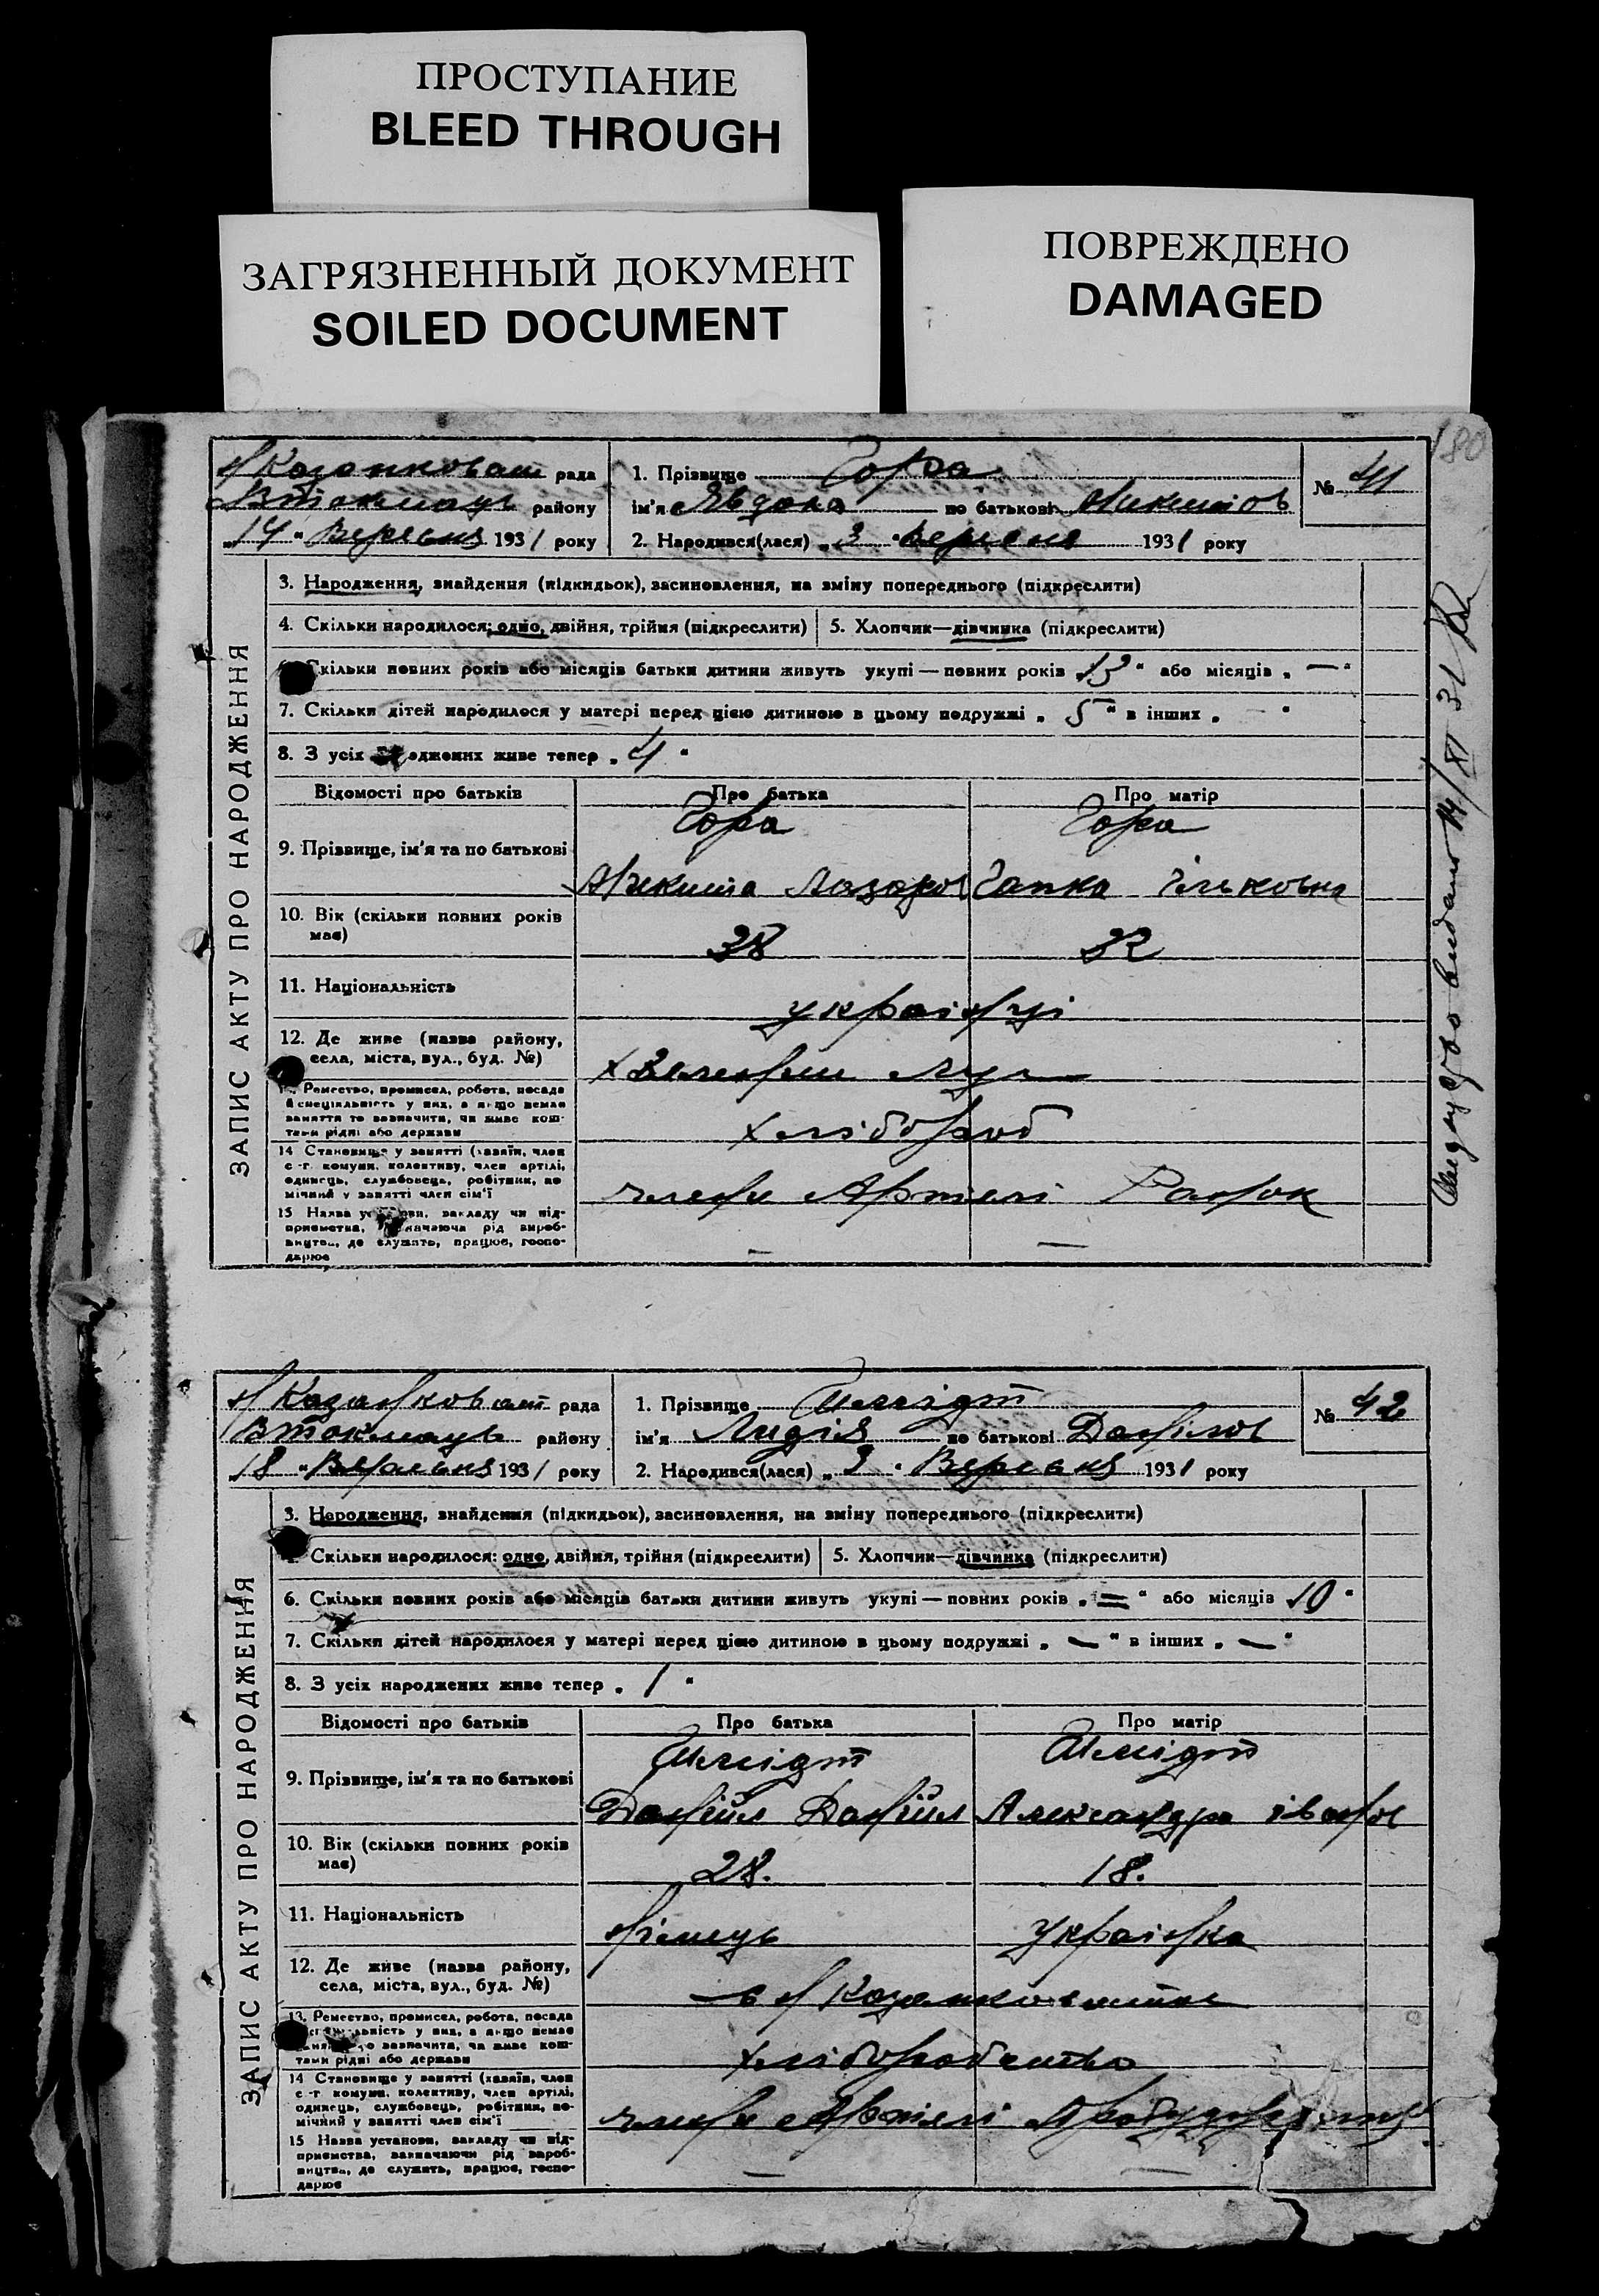 ПРОСТУПАНИЕ
BLEED THROUGH
ЗАГРЯЗНЕННЫЙ ДОКУМЕНТ
SOILED DOCUMENT
ПОВРЕЖДЕНО
DAMAGED
180
рада
району
"14" Вересня 1931 року
1. Прізвище Гора
ім'я Явдоха по батькові
2. Народився(лася) "3" Вересня 1931 року
№ 41
ЗАПИС АКТУ ПРО НАРОДЖЕННЯ
3. Народження, знайдення (підкидьок), засиновлення, на зміну попереднього (підкреслити)
4. Скільки народилося: одно, двійня, трійня (підкреслити)
5. Хлопчик—дівчинка (підкреслити)
Скільки повних років або місяців батьки дитини живуть укупі — повних років "13" або місяців "—"
7. Скільки дітей народилося у матері перед цією дитиною в цьому подружжі "5" в інших "—"
8. З усіх народжених живе тепер "4"
Відомості про батьків Про батька Про матір
9. Прізвище, ім'я та по батькові
Гора Гора
Микита Лазаров Гапка Ільковна
10. Вік (скільки повних років має)
38 32
11. Національність
українці
12. Де живе (назва району, села, міста, вул., буд. №)
Ремество, промисел, робота, посада й спеціяльність у них, а якщо немає заняття то зазначити, чи живе коштами рідні або держави
хлібороб
14 Становище у занятті (хазяїн, член с.-г. комуни, колективу, член артілі, одинець, службовець, робітник, помічний у занятті член сім'ї
члени Артілі Ранок
15 Назва установи, закладу чи підприємства, зазначаючи рід виробництва, де служить, працює, господарює
— —
видано 14/XI 31
Н Казанковат рада
Втокмаць району
"18" Вересня 1931 року
1. Прізвище Шмідт
ім'я Лидія по батькові Данілов
2. Народився(лася) "3" Вересня 1931 року
№ 42
ЗАПИС АКТУ ПРО НАРОДЖЕННЯ
3. Народження, знайдення (підкидьок), засиновлення, на зміну попереднього (підкреслити)
Скільки народилося: одно, двійня, трійня (підкреслити)
5. Хлопчик—дівчинка (підкреслити)
6. Скільки повних років або місяців батьки дитини живуть укупі — повних років "—" або місяців "10"
7. Скільки дітей народилося у матері перед цією дитиною в цьому подружжі "—" в інших "—"
8. З усіх народжених живе тепер "1"
Відомості про батьків Про батька Про матір
9. Прізвище, ім'я та по батькові
Шмідт Шмідт
Даніїл Даніїл Александра Іванов
10. Вік (скільки повних років має)
28. 18.
11. Національність
Німець Українка
12. Де живе (назва району, села, міста, вул., буд. №)
в Н Казанковатом
13. Ремество, промисел, робота, посада й спеціяльність у них, а якщо немає заняття то зазначити, чи живе коштами рідні або держави
хліборобство
14 Становище у занятті (хазяїн, член с.-г. комуни, колективу, член артілі, одинець, службовець, робітник, помічний у занятті член сім'ї
члени Артілі
15 Назва установи, закладу чи підприємства, зазначаючи рід виробництва, де служить, працює, господарює
— —